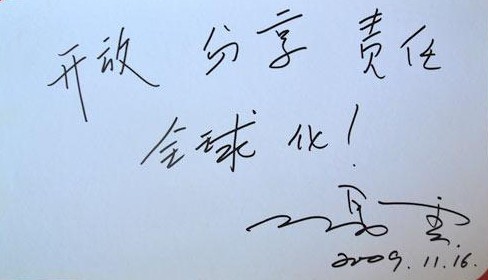 开放 分享 责任
全球化！
马云
2009.11.16.